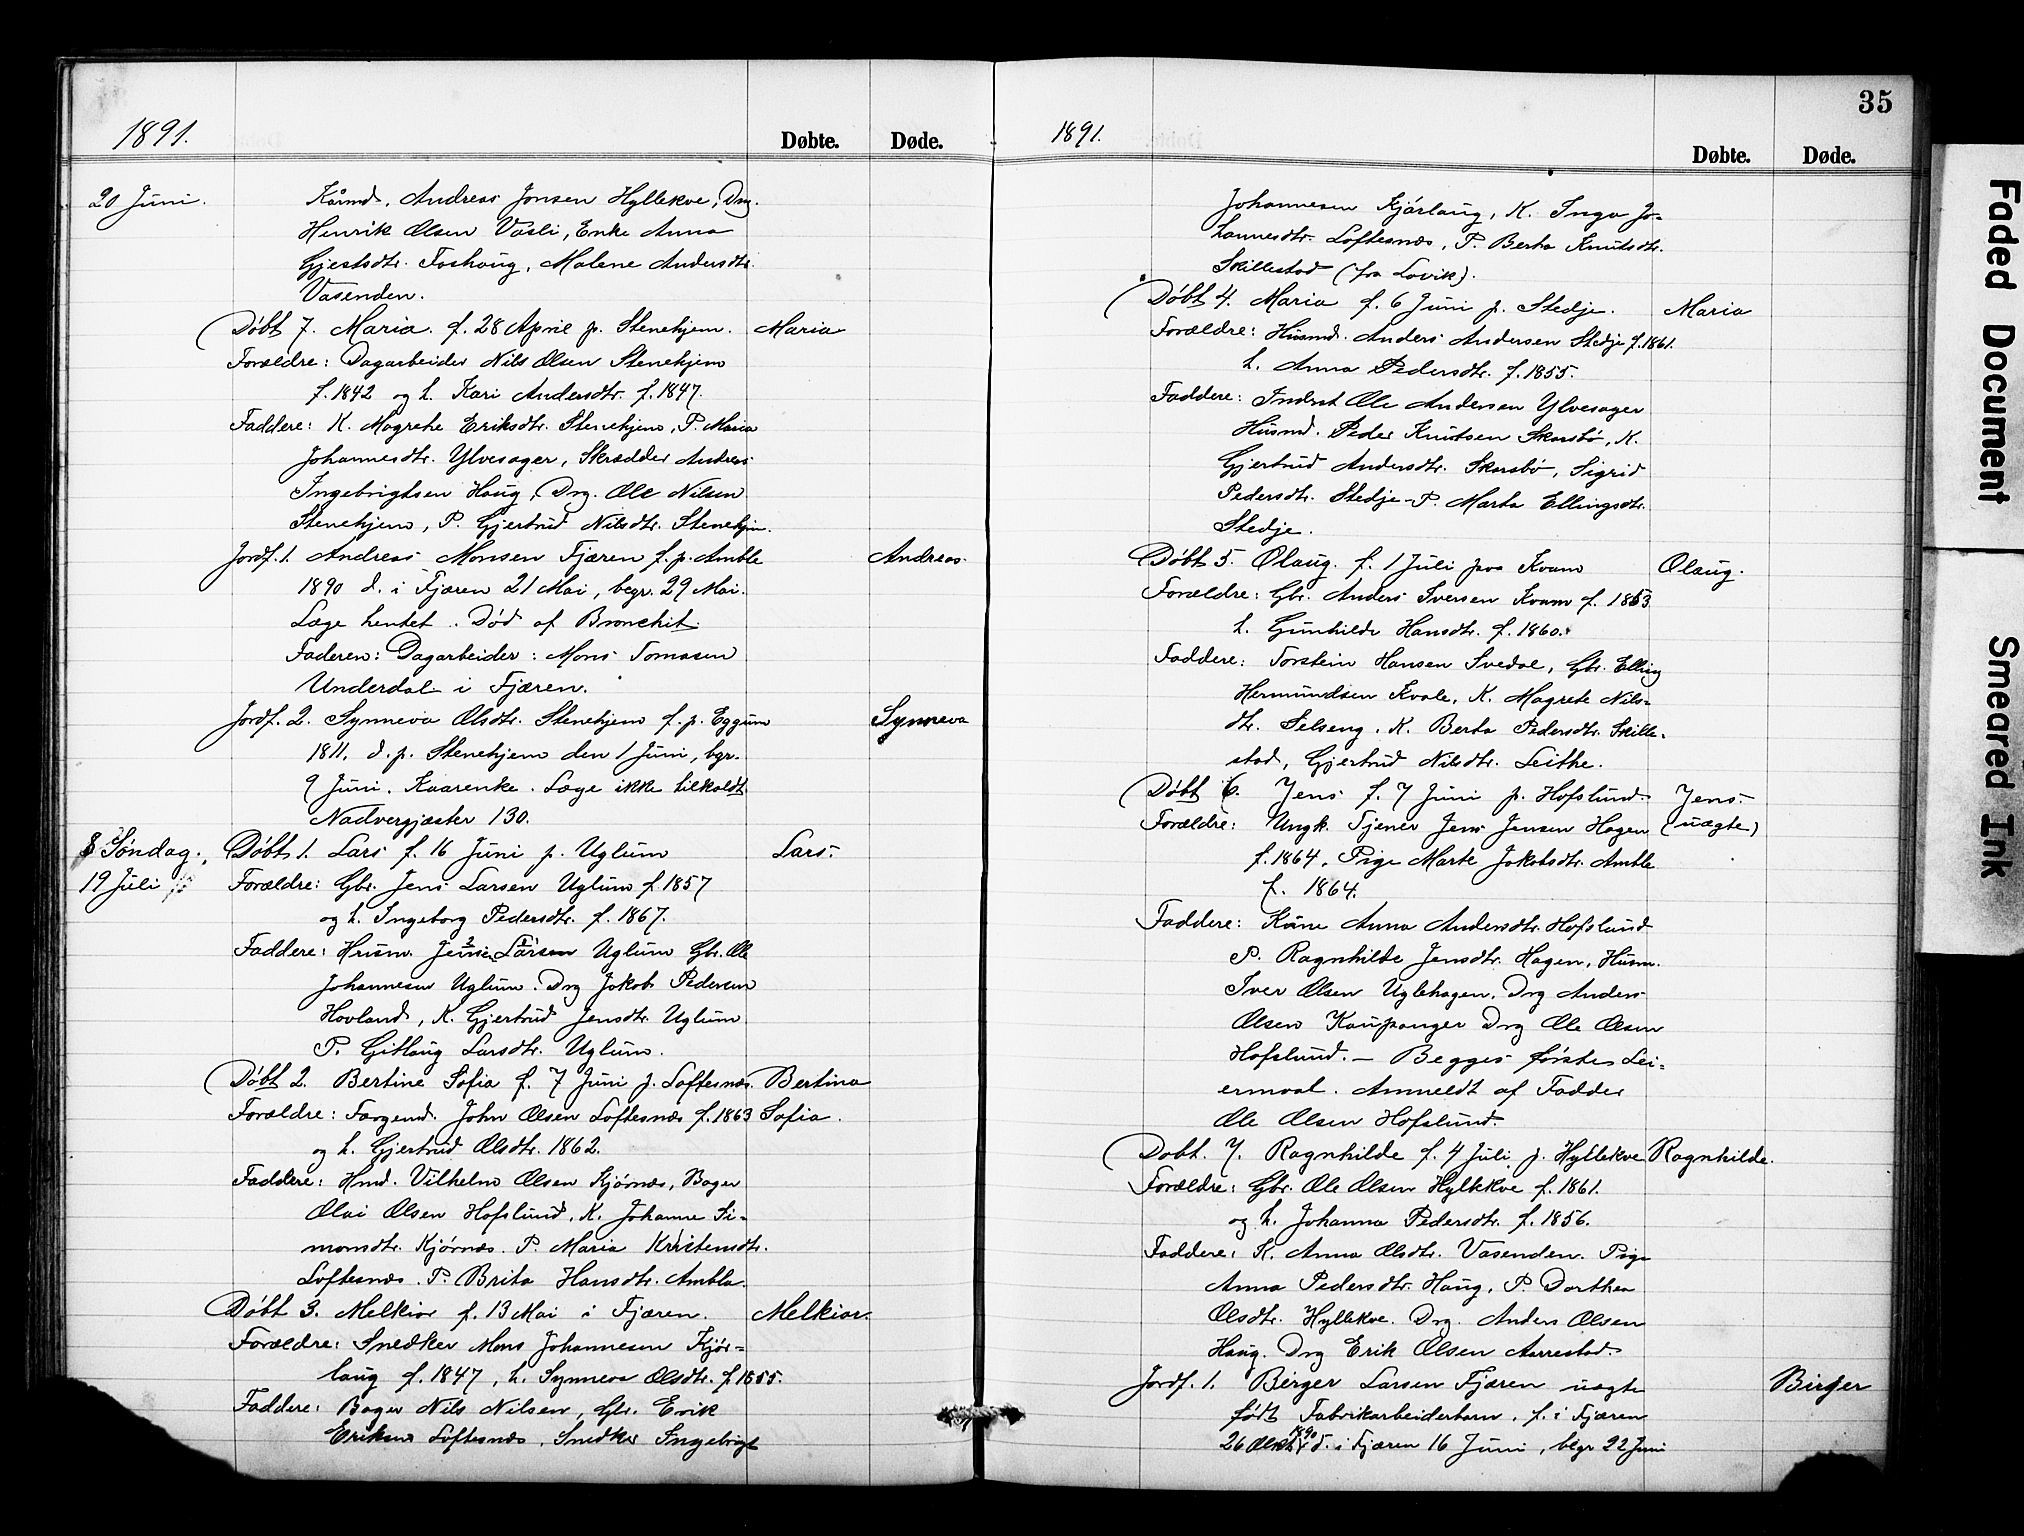 35
1891.
Døbte.
Døde.
20 Juni.
Kårmd. Andreas Jonsen Hyllekve, Drg.
Henrik Olsen Vasli, Enke Anna
Gjestsdtr. Foshaug, Malene Andersdtr.
Vasenden.
Døbt 7. Maria f. 28 April p. Stenehjem. Maria
Forældre: Dagarbeider Nils Olsen Stenehjem
f. 1842 og h. Kari Andersdtr. f. 1847.
Faddere: K. Magrete Eriksdtr. Stenehjem, P. Maria
Johannesdtr. Ylvesager, Skrædder Andreas
Ingebrigtsen Haug, Drg. Ole Nilsen
Stenehjem, P. Gjertrud Nilsdtr. Stenehjm.
Jordf. 1. Andreas Monsen Fjæren f. p. Amble Andreas.
1890 d. i Fjæren 21 Mai, begr. 29 Mai.
Læge hentet. Død af Bronchit.
Faderen: Dagarbeider: Mons Tomasen
Underdal i Fjæren.
Jordf. 2. Synneva Olsdtr. Stenehjem f. p. Eggum Synneva
1811. d. p. Stenehjem den 1 Juni, bgr.
9 Juni. Kaarenke. Læge ikke tilkaldt.
Nadvergjæster 130.
8 Søndag.
19 Juli
Døbt 1. Lars f. 16 Juni p. Uglum Lars.
Forældre: Gbr. Jens Larsen Uglum f. 1857
og h. Ingeborg Pedersdtr. f. 1867.
Faddere: Husm. Jens Larsen Uglum Gbr. Ole
Johannesen Uglum. Drg Jakob Pedersen
Hovland, K. Gjertrud Jensdtr. Uglum
P. Gitlaug Larsdtr. Uglum.
Døbt 2. Bertine Sofia f. 7 Juni p. Loftesnæs. Bertina
Forældre: John Olsen Loftesnæs f. 1863 Sofia.
og h. Gjertrud Olsdtr. 1862.
Faddere: Hmd. Vilhelm Olsen Kjørnæs, Bager
Olai Olsen Hofslund, K. Johanne Si-
monsdtr. Kjørnæs. P. Maria Kristensdtr.
Loftesnæs. P. Brita Hansdtr. Ambla.
Døbt 3. Melkior f. 13 Mai i Fjæren. Melkior.
Forældre: Snedker Mons Johannesen Kjør-
laug f. 1847, h. Synneva Olsdtr. f 1855.
Faddere: Bager Nils Nilsen, Gbr. Erik
Eriksen Loftesnæs. Snedker Ingebrigt
1891.
Døbte.
Døde.
Johannesen Kjørlaug, K. Inga Jo-
hannesdtr. Loftesnæs, P. Berta Knutsdtr.
Skillestad (fra Lavik).
Døbt 4. Maria f. 6 Juni p. Stedje. Maria
Forældre: Husmd. Anders Andersen Stedje f. 1861.
h. Anna Pedersdtr. f. 1855.
Faddere: Indrst Ole Andersen Ylvesager
Husmd. Peder Knutsen Skarsbø, K.
Gjertrud Andersdtr. Skarsbø, Sigrid
Pedersdtr. Stedje - P. Marta Ellingsdtr.
Stedje.
Døbt 5. Olaug f. 1 Juli paa Kvam Olaug.
Forældre: Gbr. Anders Iversen Kvam f. 1853
h. Gunhilde Hansdtr. f. 1860.
Faddere: Torstein Hansen Svedal, Gbr. Elling
Hermundsen Kvale, K. Magrete Nils-
dtr. Selseng, K. Berta Pedersdtr. Skille-
stad, Gjertrud Nilsdtr. Leithe.
Døbt 6. Jens f. 7 Juni p. Hofslund. Jens.
Forældre: Ungk. Tjener Jens Jensen Hagen (uægte)
f. 1864, Pige Marte Jakobsdtr. Amble
f. 1864.
Faddere: Kone Anna Andersdtr. Hofslund
P. Ragnhilde Jensdtr. Hagen, Husm.
Iver Olsen Uglehagen, Drg Anders
Olsen Kaupanger Drg Ole Olsen
Hofslund. — Begges første Lei-
ermaal. Anmeldt af Fadder
Ole Olsen Hofslund.
Døbt. 7. Ragnhilde f. 4 Juli p. Hyllekve Ragnhilde.
Forældre: Gbr. Ole Olsen Hyllekve f. 1861.
og h. Johanna Pedersdtr. f. 1856.
Faddere: K. Anna Olsdtr. Vasenden. Pige
Anna Pedersdtr. Haug, P. Dorthea
Olsdtr. Hyllekve. Drg. Anders Olsen
Haug. Drg Erik Olsen Aarrestad.
Jordf. 1. Birger Larsen Fjæren uægte Birger
født Fabrikarbeiderbarn. f. i Fjæren
26 Okt 1890 d. i Fjæren 16 Juni, begr 22 Juni
Faded Document
Smeared Ink